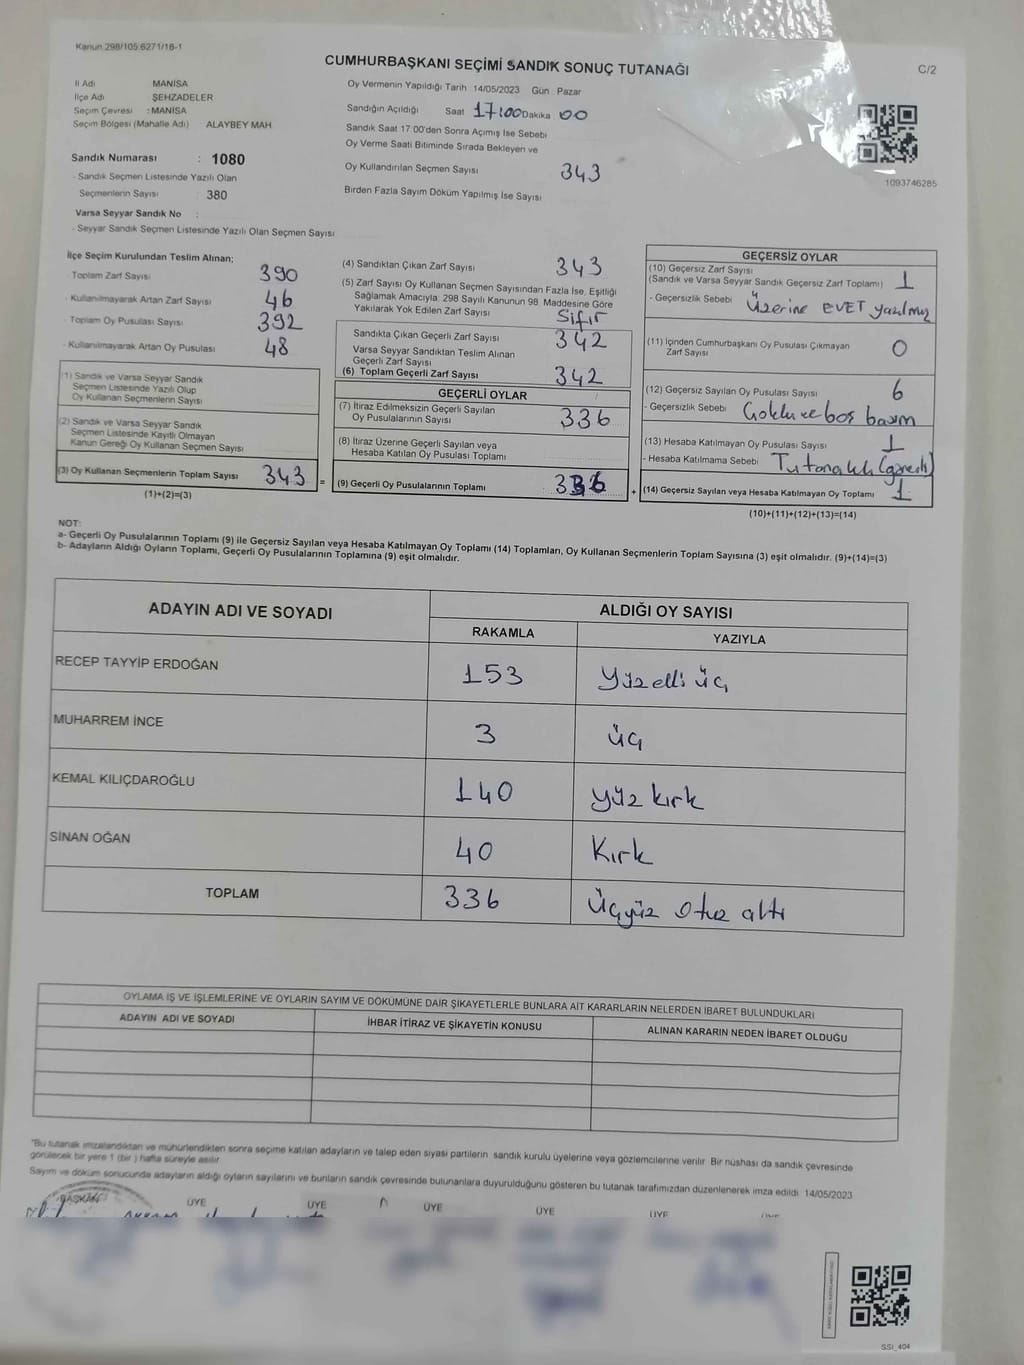 Kanun 298/105.6271/18-1
CUMHURBAŞKANI SEÇİMİ SANDIK SONUÇ TUTANAĞI
C/2
İl Adı MANİSA
İlçe Adı ŞEHZADELER
Seçim Çevresi : MANİSA
Seçim Bölgesi (Mahalle Adı) ALAYBEY MAH
Sandık Numarası : 1080
- Sandık Seçmen Listesinde Yazılı Olan
Seçmenlerin Sayısı : 380
Varsa Seyyar Sandık No :
- Seyyar Sandık Seçmen Listesinde Yazılı Olan Seçmen Sayısı
Oy Vermenin Yapıldığı Tarih 14/05/2023 Gün Pazar
Sandığın Açıldığı Saat 17:00 Dakika 00
Sandık Saat 17 00'den Sonra Açımış İse Sebebi
Oy Verme Saati Bitiminde Sırada Bekleyen ve
Oy Kullandırılan Seçmen Sayısı 343
Birden Fazla Sayım Döküm Yapılmış İse Sayısı
1093746285
İlçe Seçim Kurulundan Teslim Alınan;
- Toplam Zarf Sayısı 390
- Kullanılmayarak Artan Zarf Sayısı 46
- Toplam Oy Pusulası Sayısı 392
- Kullanılmayarak Artan Oy Pusulası 48
(1) Sandık ve Varsa Seyyar Sandık
Seçmen Listesinde Yazılı Olup
Oy Kullanan Seçmenlerin Sayısı
(2) Sandık ve Varsa Seyyar Sandık
Seçmen Listesinde Kayıtlı Olmayan
Kanun Gereği Oy Kullanan Seçmen Sayısı
(3) Oy Kullanan Seçmenlerin Toplam Sayısı 343 =
(1)+(2)=(3)
(4) Sandıktan Çıkan Zarf Sayısı 343
(5) Zarf Sayısı Oy Kullanan Seçmen Sayısından Fazla İse, Eşitliği
Sağlamak Amacıyla, 298 Sayılı Kanunun 98. Maddesine Göre
Yakılarak Yok Edilen Zarf Sayısı Sıfır
Sandıkta Çıkan Geçerli Zarf Sayısı 342
Varsa Seyyar Sandıktan Teslim Alınan
Geçerli Zarf Sayısı
(6) Toplam Geçerli Zarf Sayısı 342
GEÇERLİ OYLAR
(7) İtiraz Edilmeksizin Geçerli Sayılan
Oy Pusulalarının Sayısı 336
(8) İtiraz Üzerine Geçerli Sayılan veya
Hesaba Katılan Oy Pusulası Toplamı
(9) Geçerli Oy Pusulalarının Toplamı : 336 +
GEÇERSİZ OYLAR
(10) Geçersiz Zarf Sayısı
(Sandık ve Varsa Seyyar Sandık Geçersiz Zarf Toplamı) 1
- Geçersizlik Sebebi Üzerine EVET yazılmış
(11) İçinden Cumhurbaşkanı Oy Pusulası Çıkmayan
Zarf Sayısı 0
(12) Geçersiz Sayılan Oy Pusulası Sayısı 6
- Geçersizlik Sebebi Çoklu ve boş basım
(13) Hesaba Katılmayan Oy Pusulası Sayısı 1
- Hesaba Katılmama Sebebi
(14) Geçersiz Sayılan veya Hesaba Katılmayan Oy Toplamı 1
(10)+(11)+(12)+(13)=(14)
NOT:
a- Geçerli Oy Pusulalarının Toplamı (9) ile Geçersiz Sayılan veya Hesaba Katılmayan Oy Toplamı (14) Toplamları, Oy Kullanan Seçmenlerin Toplam Sayısına (3) eşit olmalıdır. (9)+(14)=(3)
b- Adayların Aldığı Oyların Toplamı, Geçerli Oy Pusulalarının Toplamına (9) eşit olmalıdır.
ADAYIN ADI VE SOYADI ALDIĞI OY SAYISI
RAKAMLA YAZIYLA
RECEP TAYYİP ERDOĞAN 153 Yüzelli üç
MUHARREM İNCE 3 üç
KEMAL KILIÇDAROĞLU 140 yüz kırk
SİNAN OĞAN 40 Kırk
TOPLAM 336 Üçyüz otuz altı
OYLAMA İŞ VE İŞLEMLERİNE VE OYLARIN SAYIM VE DÖKÜMÜNE DAİR ŞİKAYETLERLE BUNLARA AİT KARARLARIN NELERDEN İBARET BULUNDUKLARI
ADAYIN ADI VE SOYADI İHBAR İTİRAZ VE ŞİKAYETİN KONUSU ALINAN KARARIN NEDEN İBARET OLDUĞU
"Bu tutanak imzalandıktan ve mühürlendikten sonra seçime katılan adayların ve talep eden siyasi partilerin sandık kurulu üyelerine veya gözlemcilerine verilir Bir nüshası da sandık çevresinde
görülecek bir yere 1 (bir ) hafta süreyle asılır
Sayım ve döküm sonucunda adayların aldığı oyların sayılarını ve bunların sandık çevresinde bulunanlara duyurulduğunu gösteren bu tutanak tarafımızdan düzenlenerek imza edildi. 14/05/2023
BAŞKAN ÜYE ÜYE ÜYE ÜYE ÜYE ÜYE
SSI_404